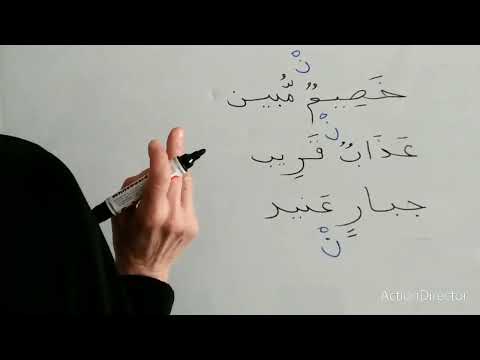 نْ
خَصِيمٌ مُّبِين
نْ
عَذَابٌ قَرِيب
جبارٍ عَنيد
نْ
ActionDirector